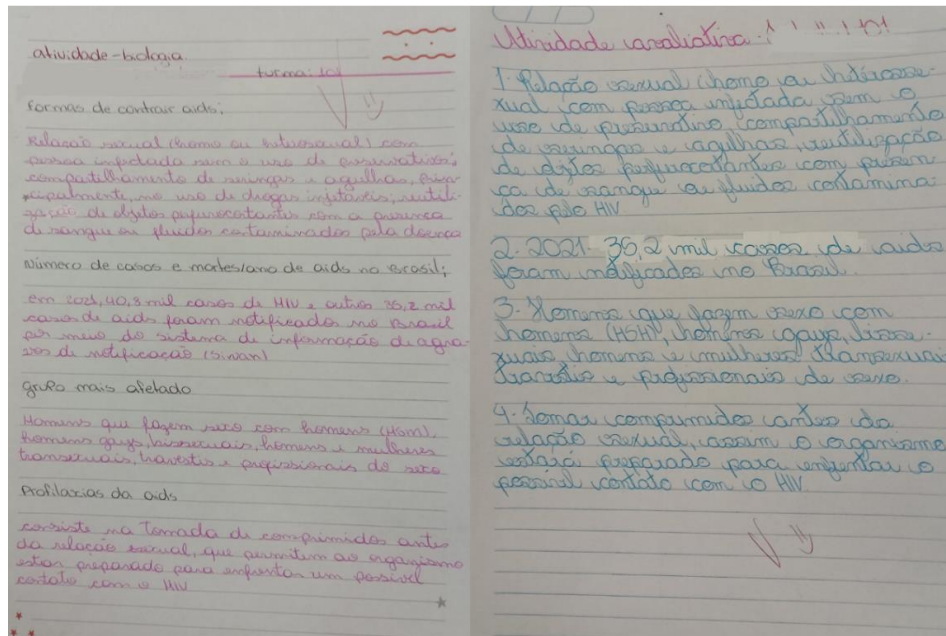 atividade-biologia
turma: 101
formas de contrair aids:
Relação sexual (homo ou heterosexual) com
pessoa infectada sem o uso de preservativos;
compartilhamento de seringas e agulhas, prin-
cipalmente, no uso de drogas injetáveis, reutili-
zação de objetos perfurocortantes com a presença
de sangue ou fluidos contaminados pela doença
Número de casos e mortes/ano de aids no Brasil;
em 2021, 40,8 mil casos de HIV e outros 35,2 mil
casos de aids foram notificados no Brasil
por meio do sistema de informação de agra-
vos de notificação (Sinan)
grupo mais afetado
Homens que fazem sexo com homens (HSM),
homens gays, bissexuais, homens e mulheres
transexuais, travestis e profissionais do sexo
Profilaxias da aids
consiste na tomada de comprimidos antes
da relação sexual, que permitem ao organismo
estar preparado para enfrentar um possível
contato com o HIV
Atividade avaliativa
1. Relação sexual (homo ou héterosse-
xual com pessoa infectada sem o
uso de preservativo (compartilhamento
de seringas e agulhas, reutilização
de objetos perfurocotantes com presen
ça de sangue ou fluidos contamina-
dos pelo HIV
2. 2021 35,2 mil casos de aids
foram notificados no Brasil.
3. Homens que fazem sexo com
homens (HSH), homens gays, bisse-
xuais homens e mulheres transexuais
travestis e profissionais de sexo.
4. Tomar comprimidos antes da
relação sexual, assim o organismo
estará preparado para enfrentar o
possível contato com o HIV